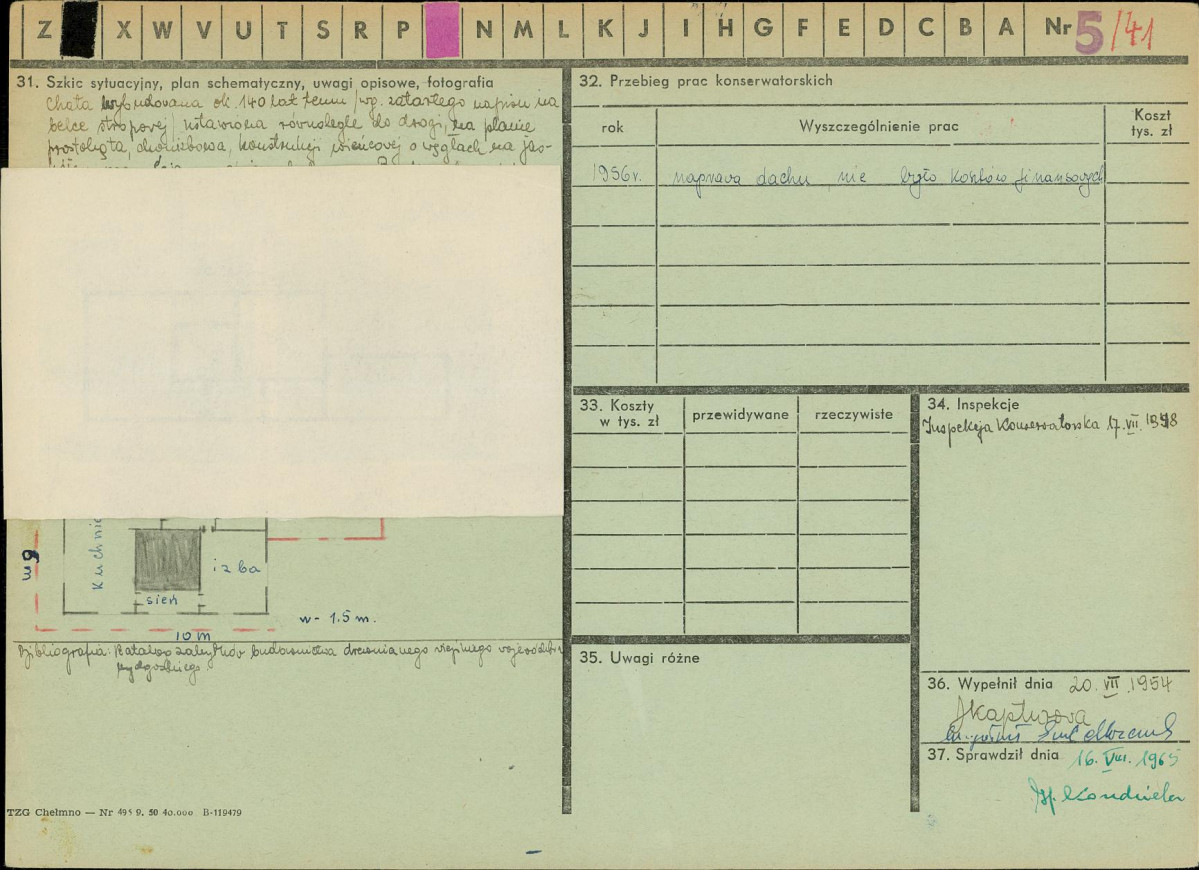 Z X W V U T S R P N M L K J I H G F E D C B A Nr 5/41
31. Szkic sytuacyjny, plan schematyczny, uwagi opisowe, fotografia
Chata wybudowana ok. 140 lat temu /wg. zatartego napisu na
belce stropowej/ ustawiona równolegle do drogi, na planie
prostokąta, konstrukcji wieńcowej o węgłach na jas-
kuchnia
izba
sień
9 m
w - 1.5 m.
10 m
Bibliografia: Katalog zabytków budownictwa drewnianego wiejskiego
bydgoskiego.
TZG Chełmno — Nr 495 9. 50 40.000 B-119479
32. Przebieg prac konserwatorskich
rok
Wyszczególnienie prac
Koszt
tys. zł
1956r. naprawa dachu, nie było kosztów finansowych
33. Koszty
w tys. zł
przewidywane
rzeczywiste
34. Inspekcje
Inspekcja Konserwatorska 17. VII.
35. Uwagi różne
36. Wypełnił dnia 20. VII 1954
37. Sprawdził dnia 16. VIII. 1965